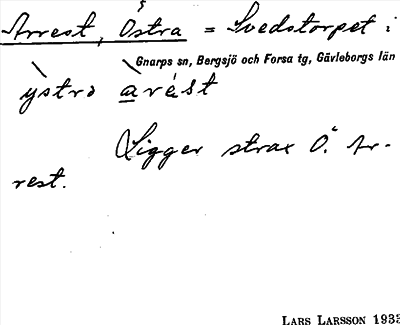 Arrest, Östra = Svedstorpet i
Gnarps sn, Bergsjö och Forsa tg, Gävleborgs län
ỳstra àrést
Ligger strax Ö. Ar-
rest.
LARS LARSSON 1933